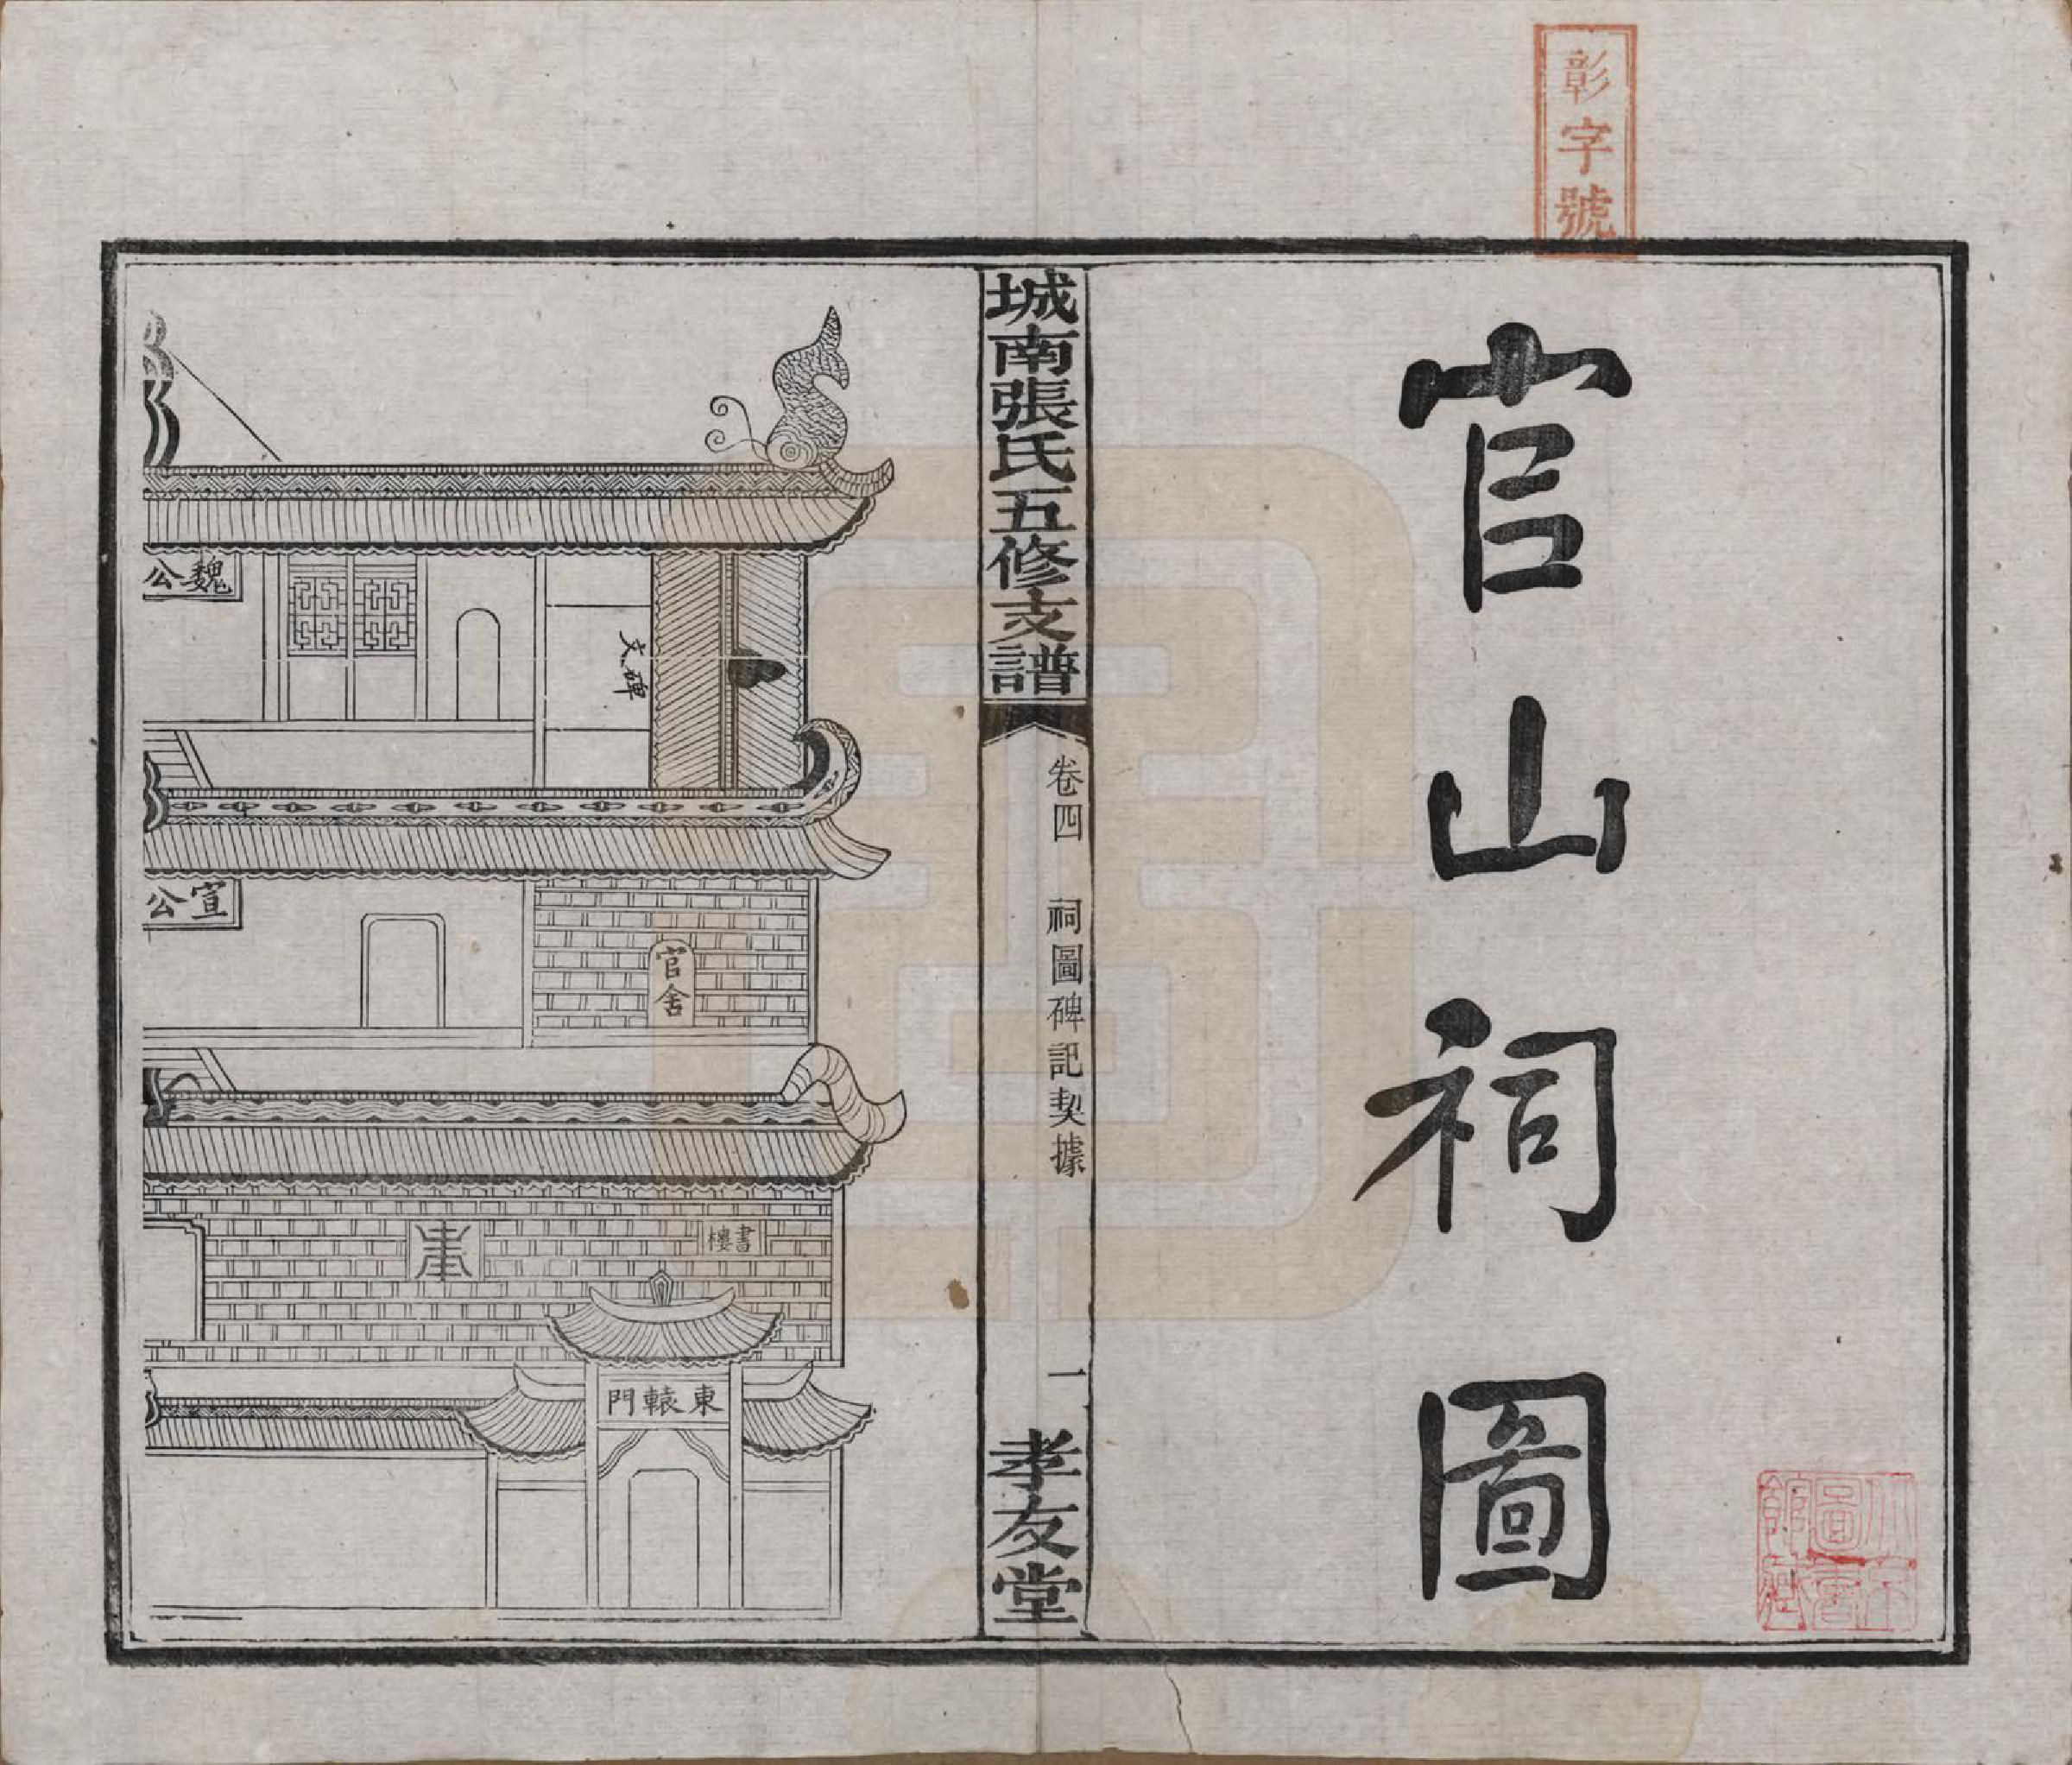 彰字號
官山祠圖
城南張氏五修支譜
卷四
祠圖碑記契據
一
孝友堂
魏公
文碑
宣公
官舍
書樓
東轅門